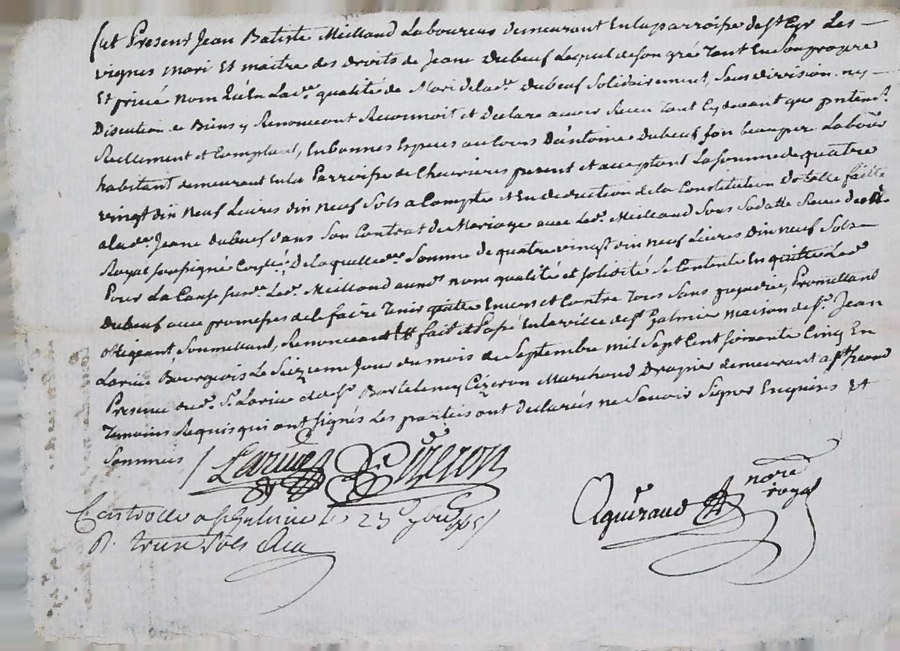 fut Present Jean Batiste Meilland Laboureur demeurant En la parroisse de St Cyr Les
vignes mari Et maitre des droits de Jeane Dubeuf Lequel de son gré Tant En son propre
Et privé nom qu'En La de. qualité de Mari de la de. Dubeuf Solidairement, Sans division ny
Discution de Biens y Renonceant Reconnoit et Declare avoir Receu Tant Cy devant que
Reellement et Comptant, En bonnes Especes au Cours D'Antoine Dubeuf son beau per Labour
habitant demeurant En la Parroisse de Chevrieres present et acceptant La somme de quatre
vingt din Neuf Livres din Neuf Sols a Compte et En deduction de la Constitution Dotalle faitte
a la de. Jeane dubeuf dans Son Contrat de Mariage avec Led. Meilland Sous Sa datte Receu
Royal soussigné De laquelle de. Somme de quatre vingt din neuf Livres Din neuf Sols
Pour La Cause Led. Meilland aux nom qualité et solidité Se Contente En quitte Led.
Dubeuf avec promesses de le faire Tenir quitte Envers et Contre Tous Sans Promettant
obligeant, Soumettant, Renonceant fait et Passé En la ville de St Galmier maison de Sr. Jean
Larive Bourgeois Le Sizieme Jour du mois de Septembre mil Sept Cent soixante Cinq En
Presence dud. Sr Larive et de Sr Bartelemy Cizeron Marchand Drapier demeurant a St
Temoins Requis qui ont signés Les parties ont declarés ne Scavoir Signer Enquises Et
Sommeés
Larive Cizeron
Aguiraud nore royal
Controllé a St Galmier le 23
R. treize sols